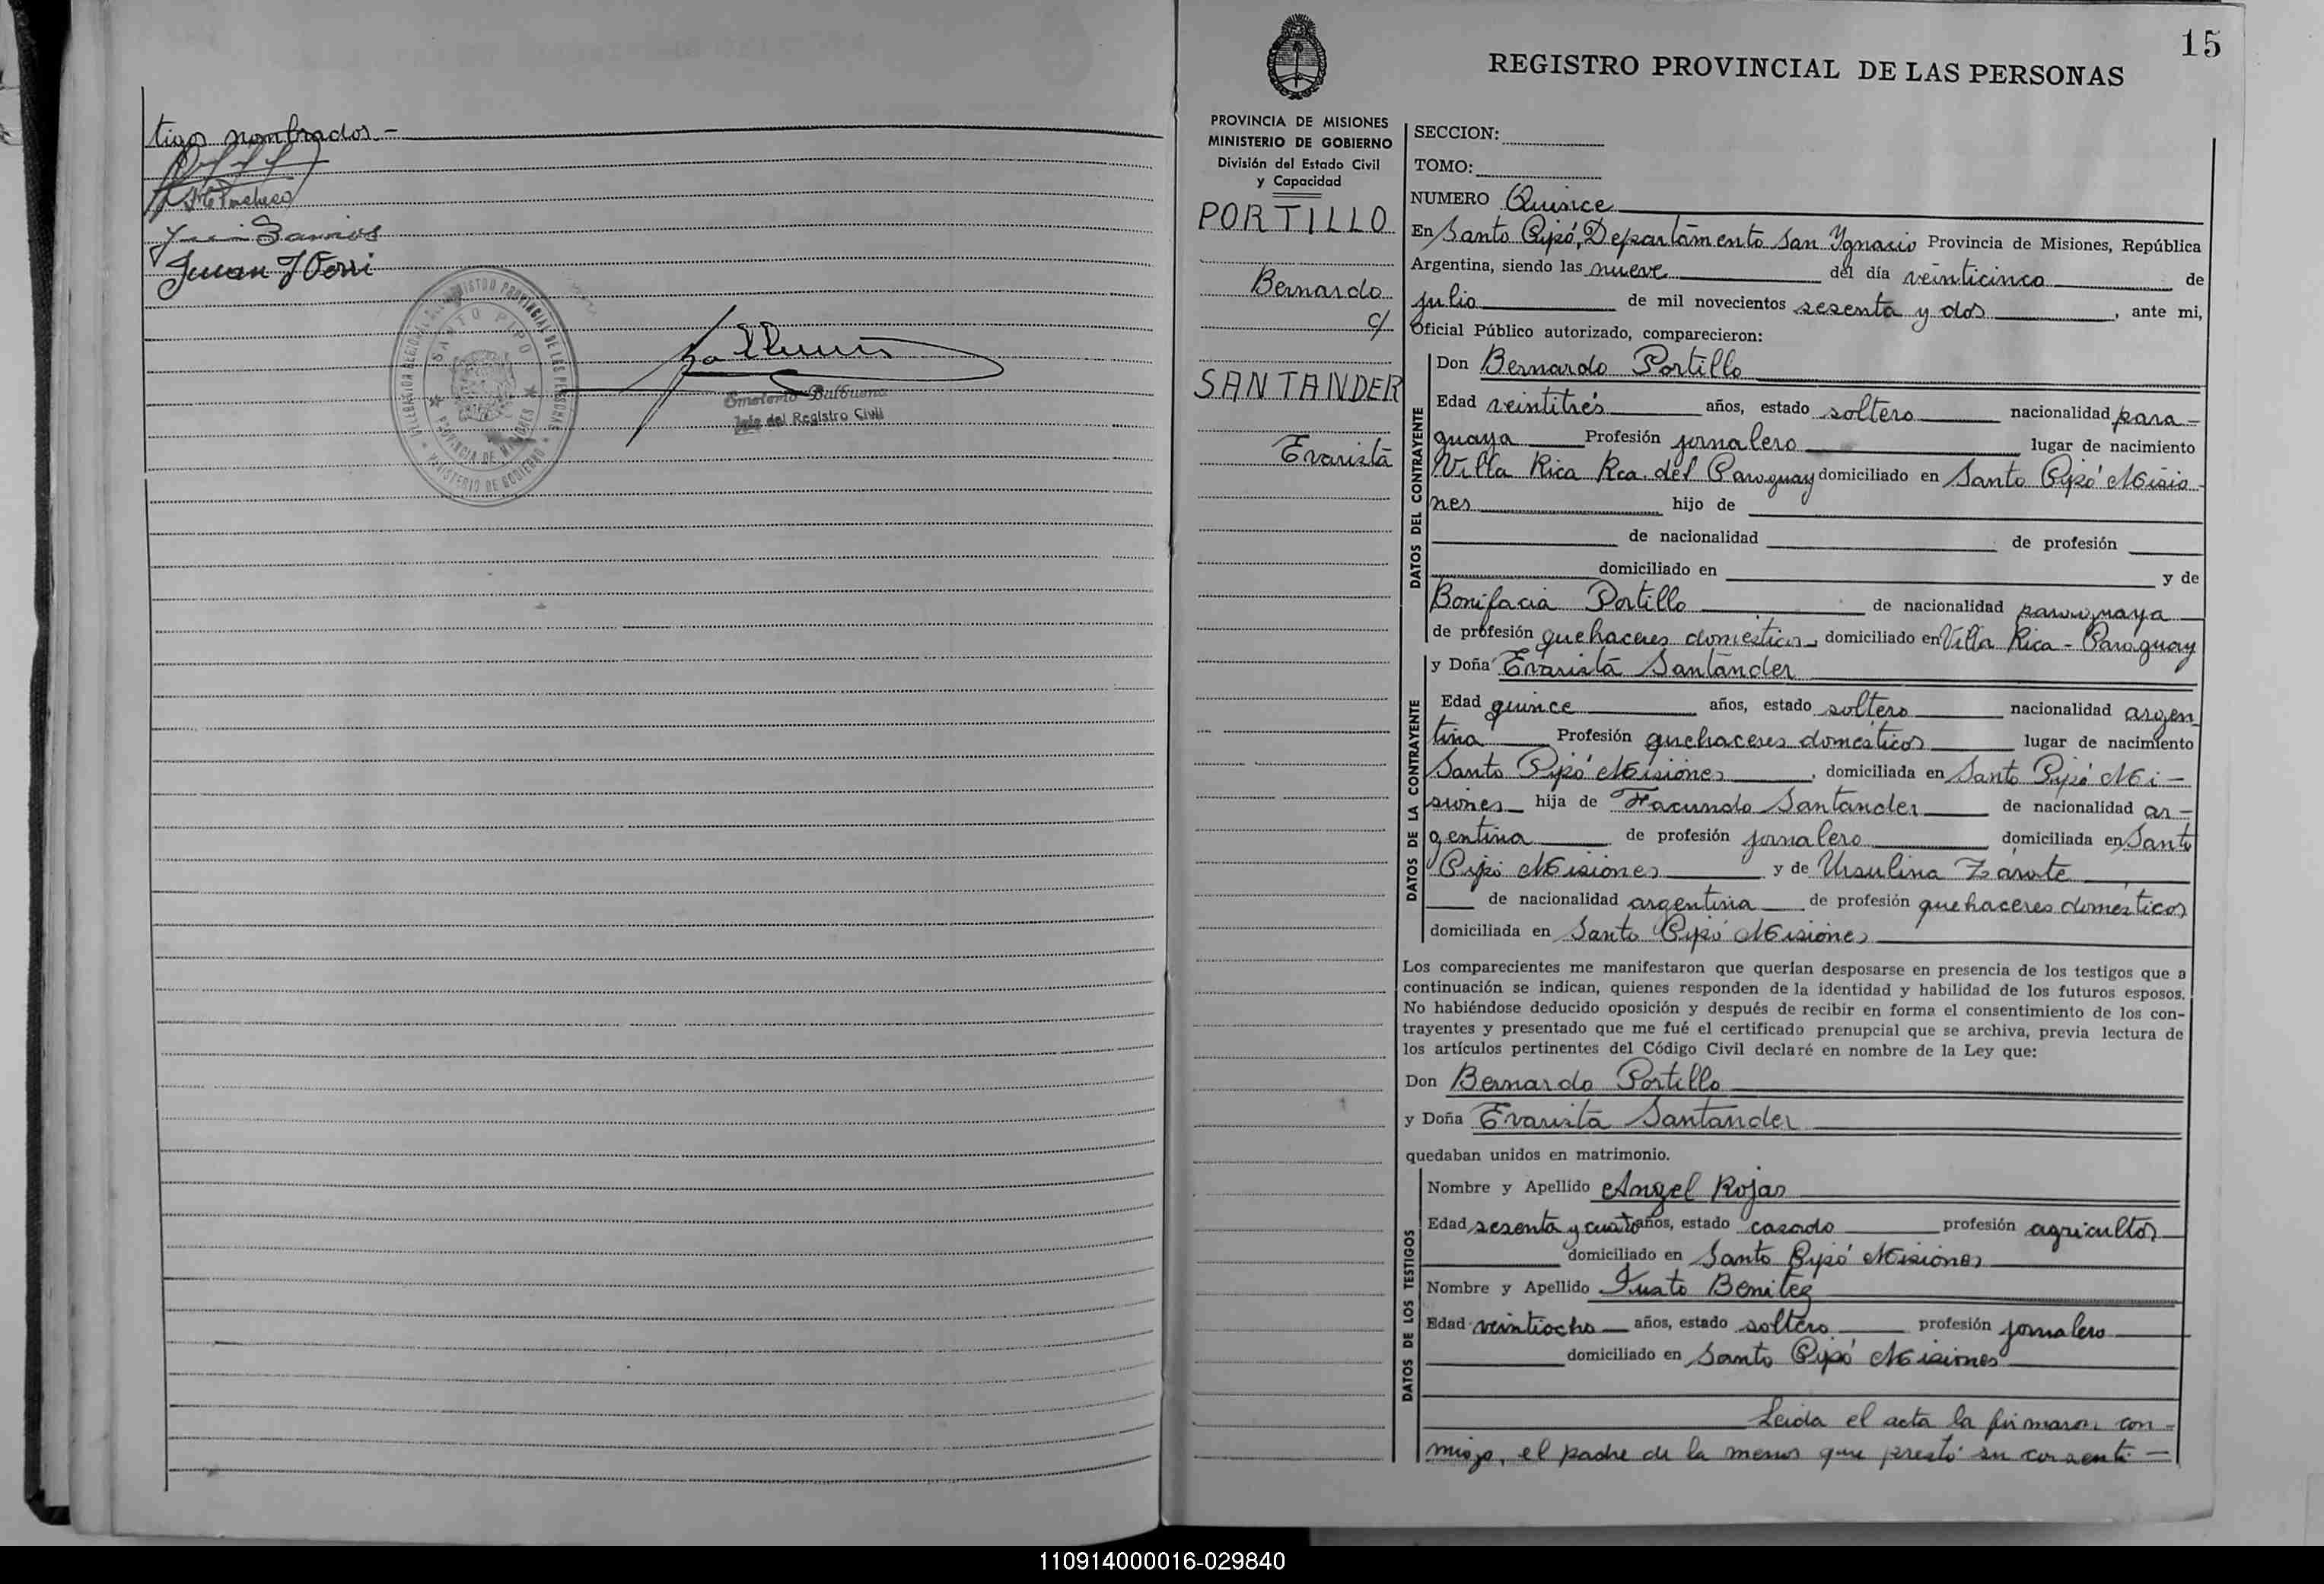 tigos nombrados.-
Juan J Verri
REGISTRO PROVINCIAL DE LAS PERSONAS
SANTO PIPO
PROVINCIA DE MISIONES
MINISTERIO DE GOBIERNO
Emeterio Balbuena
Jefe del Registro Civil
15
REGISTRO PROVINCIAL DE LAS PERSONAS
PROVINCIA DE MISIONES
MINISTERIO DE GOBIERNO
División del Estado Civil
y Capacidad
PORTILLO
Bernardo
c/
SANTANDER
Evarista
SECCION:
TOMO:
NUMERO Quince
En Santo Pipó, Departamento San Ygnacio Provincia de Misiones, República
Argentina, siendo las nueve del día veinticinco de
julio de mil novecientos sesenta y dos, ante mi,
Oficial Público autorizado, comparecieron:
DATOS DEL CONTRAYENTE
Don Bernardo Portillo
Edad veintitrés años, estado soltero nacionalidad para-
guaya Profesión jornalero lugar de nacimiento
Villa Rica Rca. del Paraguay domiciliado en Santo Pipó Misio-
nes hijo de
de nacionalidad de profesión
domiciliado en y de
Bonifacia Portillo de nacionalidad paraguaya
de profesión quehaceres domésticos domiciliado en Villa Rica - Paraguay
DATOS DE LA CONTRAYENTE
y Doña Evarista Santander
Edad quince años, estado soltero nacionalidad argen
tina Profesión quehaceres domésticos lugar de nacimiento
Santo Pipó Misiones, domiciliada en Santo Pipó Mi-
siones hija de Facundo Santander de nacionalidad ar-
gentina de profesión jornalero domiciliada en Santo
Pipó Misiones y de Ursulina Zárate
de nacionalidad argentina de profesión quehaceres domésticos
domiciliada en Santo Pipó Misiones
Los comparecientes me manifestaron que querían desposarse en presencia de los testigos que a
continuación se indican, quienes responden de la identidad y habilidad de los futuros esposos.
No habiéndose deducido oposición y después de recibir en forma el consentimiento de los con-
trayentes y presentado que me fué el certificado prenupcial que se archiva, previa lectura de
los artículos pertinentes del Código Civil declaré en nombre de la Ley que:
Don Bernardo Portillo
y Doña Evarista Santander
quedaban unidos en matrimonio.
DATOS DE LOS TESTIGOS
Nombre y Apellido Angel Rojas
Edad sesenta y cuatro años, estado casado profesión agricultor
domiciliado en Santo Pipó Misiones
Nombre y Apellido Justo Benitez
Edad veintiocho años, estado soltero profesión jornalero
domiciliado en Santo Pipó Misiones
Leida el acta la firmaron con-
migo, el padre de la menor que prestó su consenti-
110914000016-029840